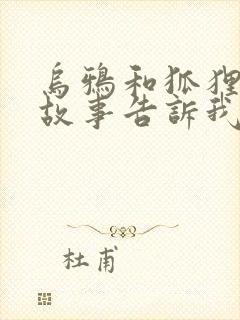 烏鴉和狐狸
故事告訴我
杜甫